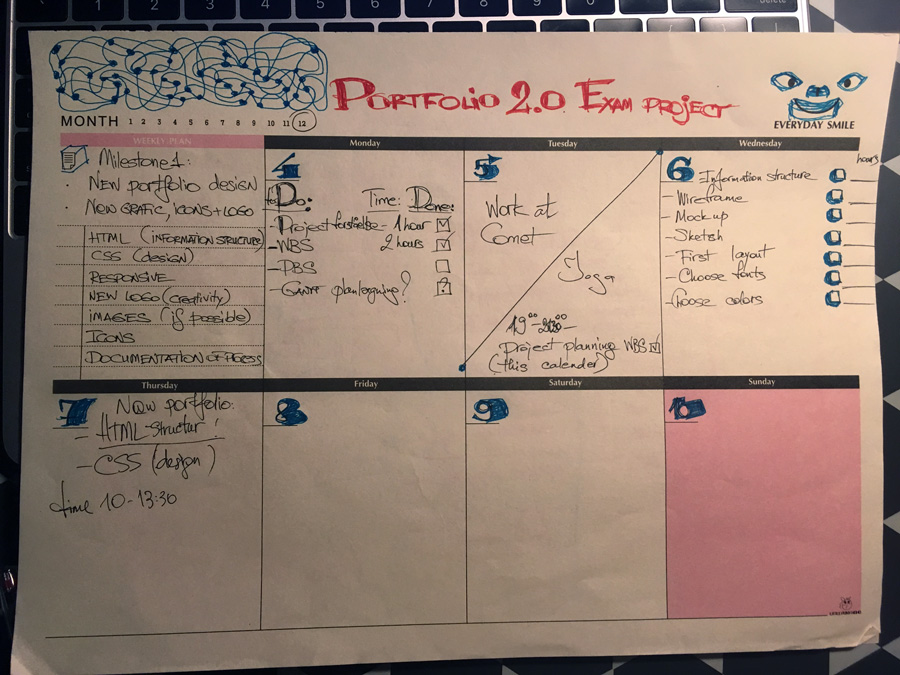 PORTFOLIO 2.0 EXAM PROJECT
MONTH 1 2 3 4 5 6 7 8 9 10 11 12
EVERYDAY SMILE
WEEKLY PLAN
Milestone 1:
· NEW portfolio design
· NEW GRAFIC, ICONS + LOGO
HTML (INFORMATION STRUCTURE)
CSS (design)
RESPONSIVE
NEW LOGO (creativity)
IMAGES (if possible)
ICONS
DOCUMENTATION OF PROCESS
Monday
4
Do: Time: Done:
- Project - 1 hour
- WBS 2 hours
- PBS
- GANTT ?
Tuesday
5
Work at
Comet
Yoga
19 00
project planning WBS
(this calender)
Wednesday
hours
6 Information structure
- Wireframe
- Mock up
- Sketsh
- First layout
- Choose fonts
- Choose colors
Thursday
7 New portfolio:
- HTML-structur!
- CSS (design)
time 10-13:30
Friday
8
Saturday
9
Sunday
10